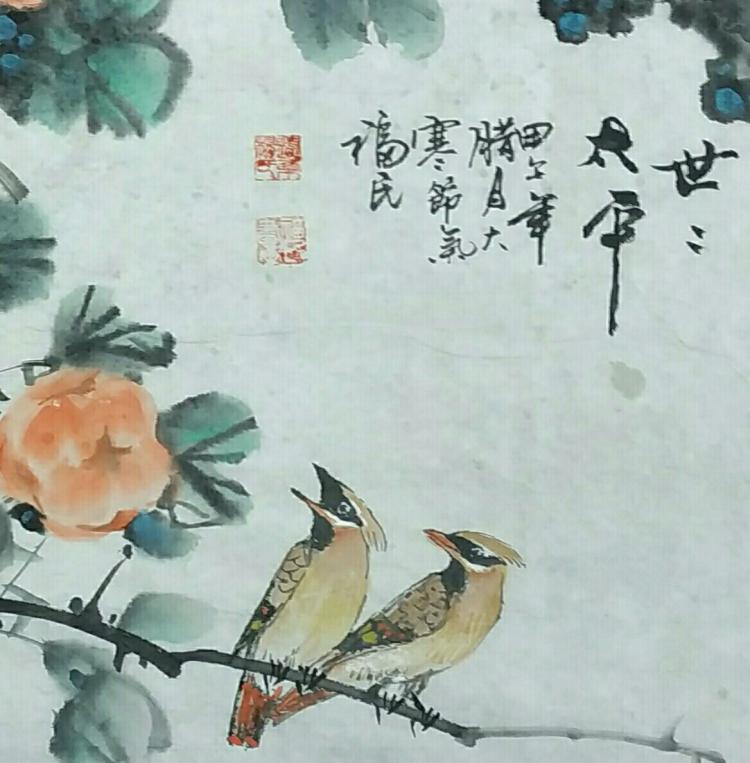 世〻
太平
甲午年
腊月大
寒節氣
福民